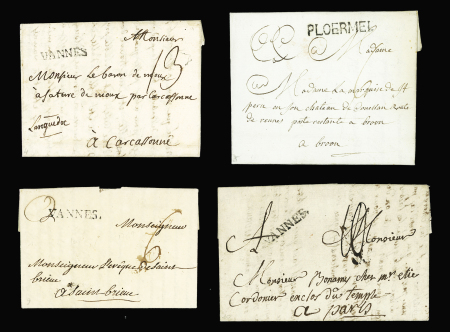 VANNES
Monsieur
13
Monsieur le baron de
à sa terre de par Carcassonne
Languedoc
à Carcassonne
PLOERMEL
Madame
Madame La marquise de St
pern en son château de
de poste restante a broon
a broon
VANNES.
Monseigneur
6
Monseigneur L'evêque de Saint
brieu
a Saint brieu
VANNES.
Monsieur
Monsieur bonami chez mr elie
Cordonier enclos du temple
a paris